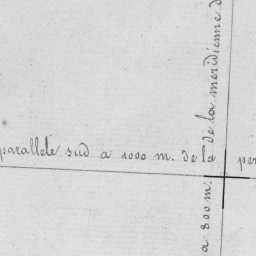 parallele sud a 1000 m. de la
per
a 800 m. de la meridienne d